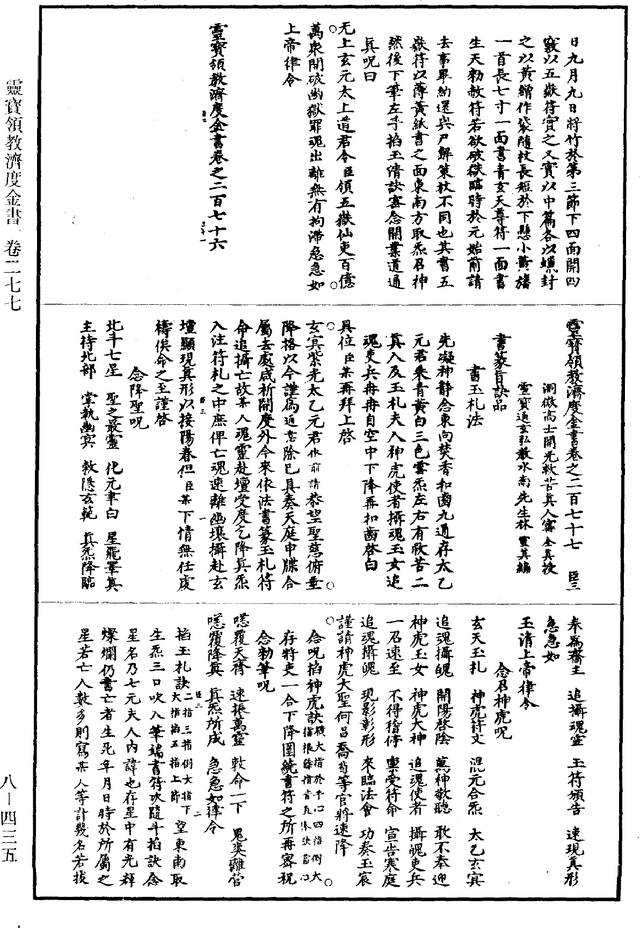 日九月九日將竹於第三節下四面開四
竅以五嶽符實之又實以中篇各以蠟封
之以黃繒作袋隨杖長短於下懸小黃旛
一首長七寸一面書青玄天尊符一面書
生天勑救苻若欲破獄臨時於元始前請
去事畢納還與尸解策杖不同也其書五
嶽符以薄黃紙書之面東南方取炁召神
然後下筆左手掐玉清訣密念開業道通
真呪曰
无上玄元太上道君令臣領五嶽仙吏百億
萬衆開破幽獄罪魂出離無有拘滯急急如
上帝律令
靈寶領教濟度金書卷之二百七十六
靈寶領教濟度金書 卷二七七
靈寶領教濟度金書卷之二百七十七 臣三
洞微高士開光救苦真人甯 全真授
靈寶通玄弘教水南先生林 靈真編
書篆旨訣品
書玉札法
先凝神靜念東向焚香和齒九通存太乙
元君乘青黃白三色雲炁左右有救苦二
真人及玉札夫人神虎使者攝魂玉女追
魂吏兵冉冉自空中下降再扣齒啓白
具位臣某再拜上啓
玄冥紫光太乙元君依前請恭望聖慈俯垂
降格以今謹爲追意除已具奏天庭申牒合
屬去處咸祈開度外今來依法書篆玉札符
命追攝亡故某人魂靈赴壇受度乞降真炁
入注符札之中庶俾亡魂速離幽壤攝赴玄
壇顯現真形以接陽眷但臣某下情無任處
禱俟命之至謹啓
念降聖呪
北斗七星 聖之最靈 化元聿白 星飛罩真
主持北部 掌執幽冥 敕隱玄範 真炁降臨
奉爲齋主 追攝魂靈 玉符頒告 速現真形
急急如
玉清上帝律令
念召神虎呪
玄天玉札 神虎符文 混元合炁 太乙玄冥
追魂攝魄 開陽啓陰 萬神敬聽 敢不奉迎
神虎玉女 神虎大神 追魂使者 攝魄吏兵
一召速至 不得稽停 稟受符命 宣告寒庭
追魂攝魄 現影彰形 來臨法會 功奏玉宸
謹請神虎大聖何昌喬荀等官將速降
念呪掐神虎訣
存將吏一合下降圍繞書符之所再密祝
念勑筆呪
嘿覆天齎 速振萬靈 敕命一下 鬼奚難營
嘿覆降真 真炁所成 急急如律令
掐玉札訣二指三指倒大指下大指掐五指上節望東南取
生炁三口吹入筆端書符次隨斗掐訣念
星名乃七元夫人内諱也存星中有光輝
燦爛仍書亡者生死年月日時於所屬之
星若亡人數多則寫某人等計幾名若拔
八—四三五